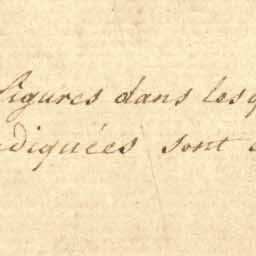 figures dans les q
diquées sont